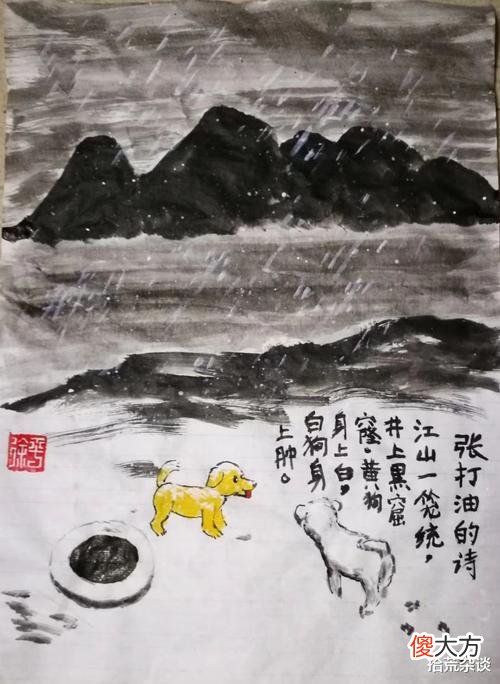 张打油的诗
江山一笼统，
井上黑窟
窿。黄狗
身上白，
白狗身
上肿。
徐平
傻大方
拾荒杂谈